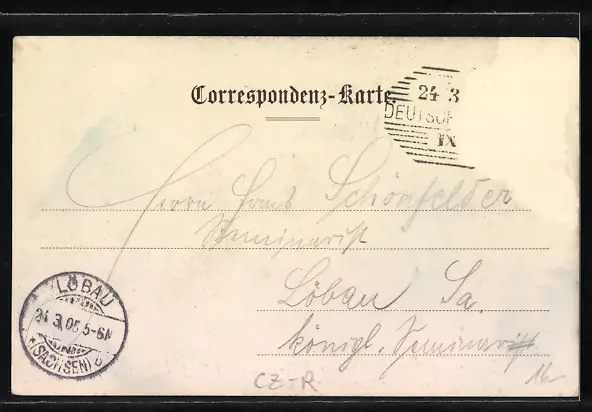 Correspondenz-Karte.
24 3
DEUTSCH
IX
Herrn Hans Schönfelder
Seminarist
Löbau Sa.
königl. Seminar
LÖBAU
24.3.05 5-6N
*(SACHSEN) b
CZ-R
16-